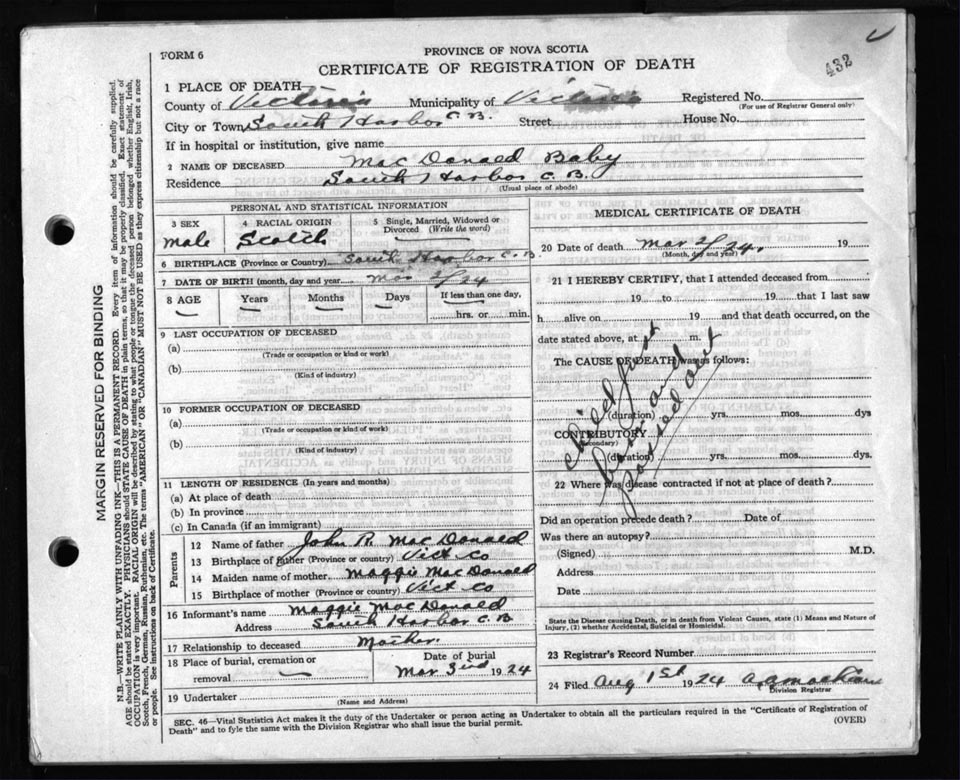 432
FORM 6
PROVINCE OF NOVA SCOTIA
CERTIFICATE OF REGISTRATION OF DEATH
1 PLACE OF DEATH
County of Victoria Municipality of Victoria Registered No.
(For use of Registrar General only)
City or Town South Harbor C.B. Street House No.
If in hospital or institution, give name
2 NAME OF DECEASED Mac Donald Baby
Residence South Harbor C.B.
(Usual place of abode)
PERSONAL AND STATISTICAL INFORMATION
3 SEX
male
4 RACIAL ORIGIN
Scotch
5 Single, Married, Widowed or Divorced (Write the word)
6 BIRTHPLACE (Province or Country) South Harbor C.B.
7 DATE OF BIRTH (month, day and year) Mar 2/24
8 AGE Years Months Days If less than one day,
hrs. or min.
9 LAST OCCUPATION OF DECEASED
(a)
(Trade or occupation or kind or work)
(b)
(Kind of industry)
10 FORMER OCCUPATION OF DECEASED
(a)
(Trade or occupation or kind or work)
(b)
(Kind of industry)
11 LENGTH OF RESIDENCE (In years and months)
(a) At place of death
(b) In province
(c) In Canada (if an immigrant)
Parents
12 Name of father John R. Mac Donald
13 Birthplace of father (Province or country) Vict Co
14 Maiden name of mother Maggie Mac Donald
15 Birthplace of mother (Province or country) Vict Co
16 Informant's name Maggie Mac Donald
Address South Harbor C.B
17 Relationship to deceased Mother
18 Place of burial, cremation or removal
Date of burial
Mar 3rd 1924
19 Undertaker
(Name and Address)
MEDICAL CERTIFICATE OF DEATH
20 Date of death Mar 2/24. 19
(Month, day and year)
21 I HEREBY CERTIFY, that I attended deceased from
19 to 19 that I last saw
h alive on 19 and that death occurred, on
date stated above, at m.
The CAUSE OF DEATH was as follows:
child just
born and
passed out
(duration) yrs. mos. dys
CONTRIBUTORY
(Secondary)
(duration) yrs. mos. dys.
22 Where was disease contracted if not at place of death?
Did an operation precede death? Date of
Was there an autopsy?
(Signed) M.D.
Address
Date
State the Disease causing Death, or in death from Violent Causes, state (1) Means and Nature of
Injury, (2) whether Accidental, Suicidal or Homicidal.
23 Registrar's Record Number
24 Filed Aug 1st 1924
Division Registrar
SEC. 46—Vital Statistics Act makes it the duty of the Undertaker or person acting as Undertaker to obtain all the particulars required in the "Certificate of Registration of
Death" and to fyle the same with the Division Registrar who shall issue the burial permit.
(OVER)
MARGIN RESERVED FOR BINDING
N.B.—WRITE PLAINLY WITH UNFADING INK—THIS IS A PERMANENT RECORD. Every item of information should be carefully supplied.
AGE should be stated EXACTLY. PHYSICIANS should STATE CAUSE OF DEATH in plain terms, so that it may be properly classified. Exact statement of
OCCUPATION is very important. RACIAL ORIGIN will be described by stating to what people or tongue the deceased person belonged whether English, Irish,
Scotch, French, German, Russian, Ruthenian, etc. The terms "AMERICAN" OR "CANADIAN" MUST NOT BE USED as they express citizenship but not a race
or people. See instructions on back of Certificate.